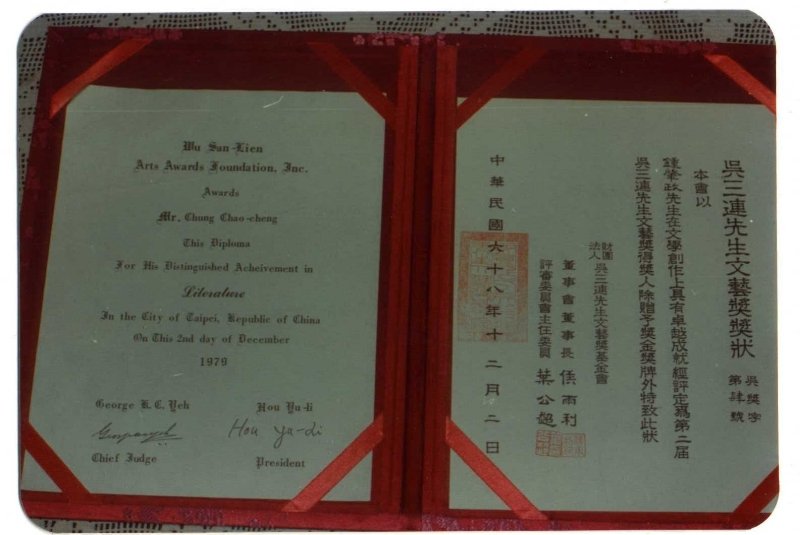 Wu San-Lien
Arts Awards Foundation, Inc.
Awards
Mr. Chung Chao-cheng
This Diploma
For His Distinguished Acheivement in
Literature
In the City of Taipei, Republic of China
On This 2nd day of December
1979
George K. C. Yeh
Hou Yu-li
Hou Yu-li
Chief Judge
President
吳三連先生文藝獎獎狀
吳獎字
第肆號
本會以
鍾肇政先生在文學創作上具有卓越成就經評定爲第二屆
吳三連先生文藝獎得獎人除贈予獎金獎牌外特致此狀
財團法人吳三連先生文藝獎基金會
董事會董事長 侯雨利
評審委員會主任委員 葉公超
中華民國六十八年十二月二日